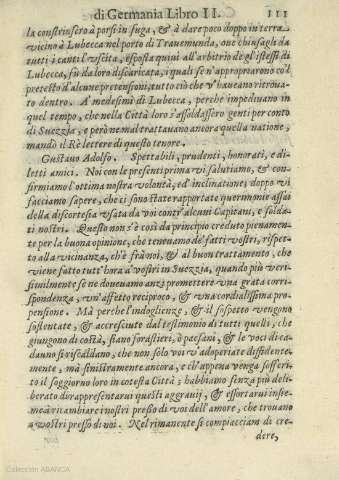 di Germania Libro II. 111
la constrinsero à porsi in fuga, & à dare poco doppo in terra
vicino à Lubecca nel porto di Trauemunda, oue chiusagli da
tutti i canti l'vscita, esposta quiui all'arbitrio degl'istessi di
Lubecca, fù da loro discaricata, i quali se n'appropriarono col
pretesto d'alcune pretensioni, tutto ciò che v'haueano ritroua
to dentro. A medesimi di Lubecca, perche impediuano in
quel tempo, che nella Città loro s'assoldassero genti per conto
di Suezzia, e però ne mal trattauano ancora quella natione,
mandò il Rè lettere di questo tenore.
Gustauo Adolfo. Spettabili, prudenti, honorati, e di-
letti amici. Noi con le presenti prima vi salutiamo, & con
firmiamo l'ottima nostra volontà, ed'inclinatione; doppo vi
facciamo sapere, che ci sono state rapportate querimonie assai
della discortesia vsata da voi contr'alcuni Capitani, e solda-
ti nostri. Questo non s'è così da principio creduto pienamen-
te per la buona opinione, che teneuamo de' fatti vostri, rispet-
to alla vicinanza, ch'è frà noi, & al buon trattamento, che
viene fatto tutt'hora a' vostri in Suezzia, quando più veri-
similmente se ne doueuamo anzi promettere vna grata corri-
spondenza, vn'affetto reciproco, & vna cordialissima pro-
pensione. Mà perche l'indoglienze, & il sospetto vengono
sostentate, & accresciute dal testimonio di tutti quelli, che
giungono di costà, siano forastieri, ò paesani, & le voci di ca-
dauno si riscaldano, che non solo voi v'adoperiate diffidente-
mente, mà sinistramente ancora, e ch'appena venga sofferi-
to il soggiorno loro in cotesta Città; habbiamo senza più deli-
berato di rappresentarui questi aggrauij, & essortarui insie-
me à ricambiare i nostri presso di voi dell'amore, che trouano
i vostri presso di noi. Nel rimanente si compiacciam di cre-
dere,
Colección ABANCA